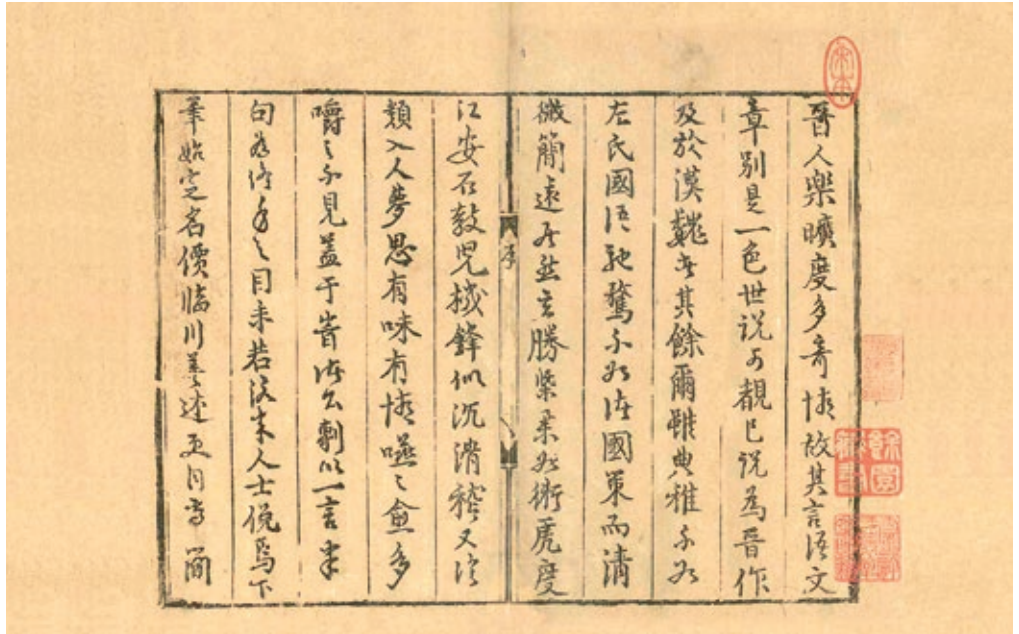 晉人樂曠度多奇情故其言語文
章別是一色世説可覩已説為晉作
及於漢魏者其餘爾雖典雅不如
左氏國語馳騖不如諸國策而清
微簡遠居然玄勝槩舉如衛虎度
序
江安石敎兒機鋒似沉滑稽又冷
類入人夢思有味有情嚥之愈多
嚼之不見盖于時諸公剸以一言半
句為終身之目未若後來人士俛焉下
筆始定名價臨川善述更自高簡